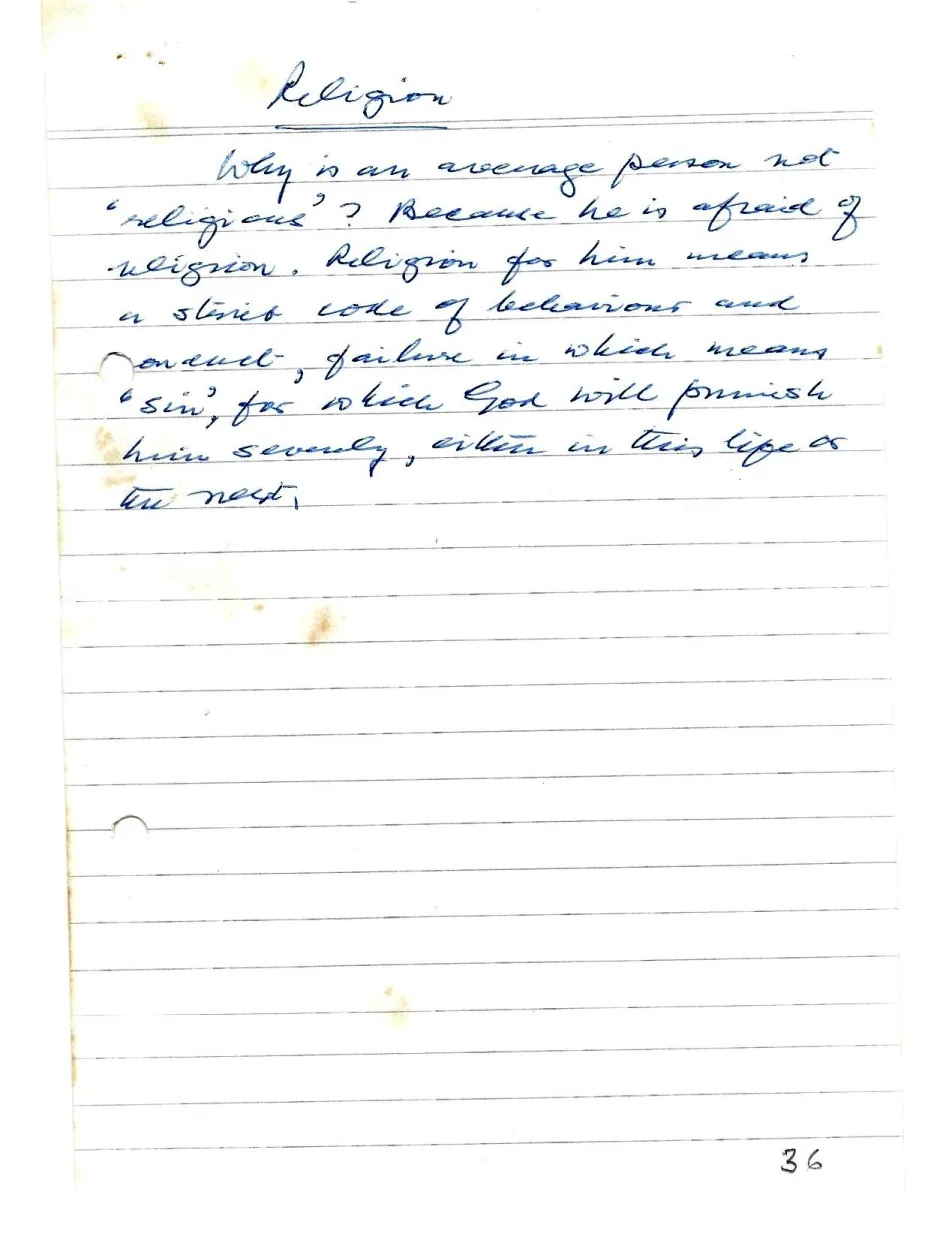 Religion
Why is an average person not
'religious'? Because he is afraid of
religion. Religion for him means
a strict code of behaviour and
conduct, failure in which means
'sin', for which God will punish
him severely, either in this life or
the next.
36